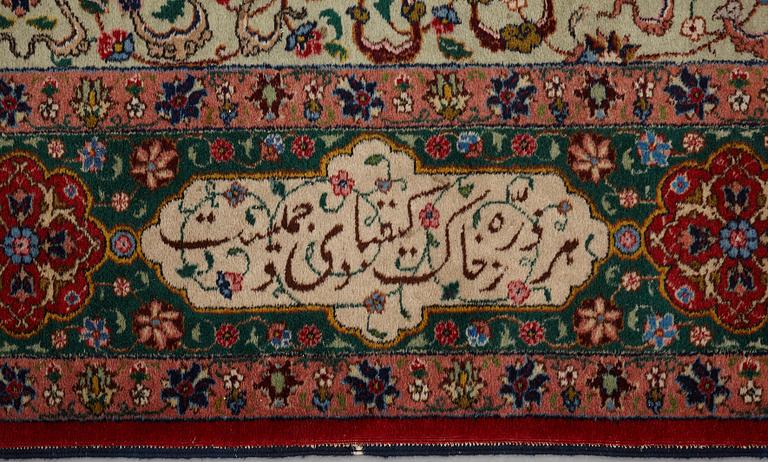 هر ذره ز خاک کیقبادی و جمیست